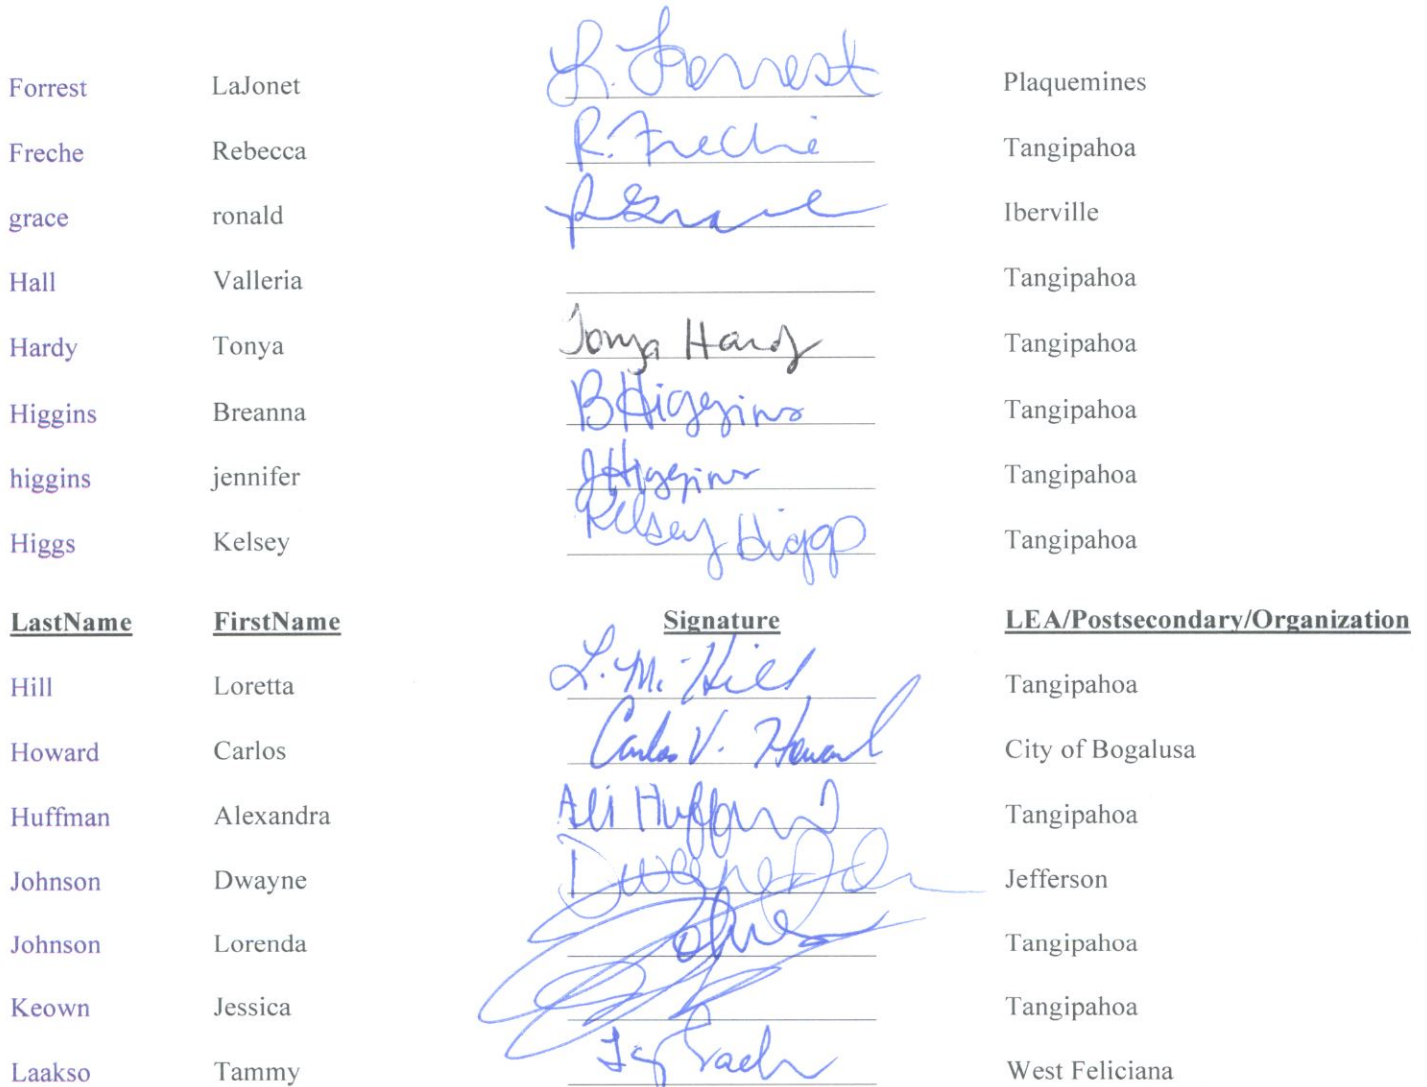 Forrest LaJonet L. Forrest Plaquemines
Freche Rebecca R. Freche Tangipahoa
grace ronald R Grace Iberville
Hall Valleria Tangipahoa
Hardy Tonya Tonya Hardy Tangipahoa
Higgins Breanna B Higgins Tangipahoa
higgins jennifer J Higgins Tangipahoa
Higgs Kelsey Kelsey Higgs Tangipahoa
LastName FirstName Signature LEA/Postsecondary/Organization
Hill Loretta L. M. Hill Tangipahoa
Howard Carlos Carlos V. Howard City of Bogalusa
Huffman Alexandra Ali Huffman Tangipahoa
Johnson Dwayne Dwayne Jefferson
Johnson Lorenda Tangipahoa
Keown Jessica Tangipahoa
Laakso Tammy West Feliciana